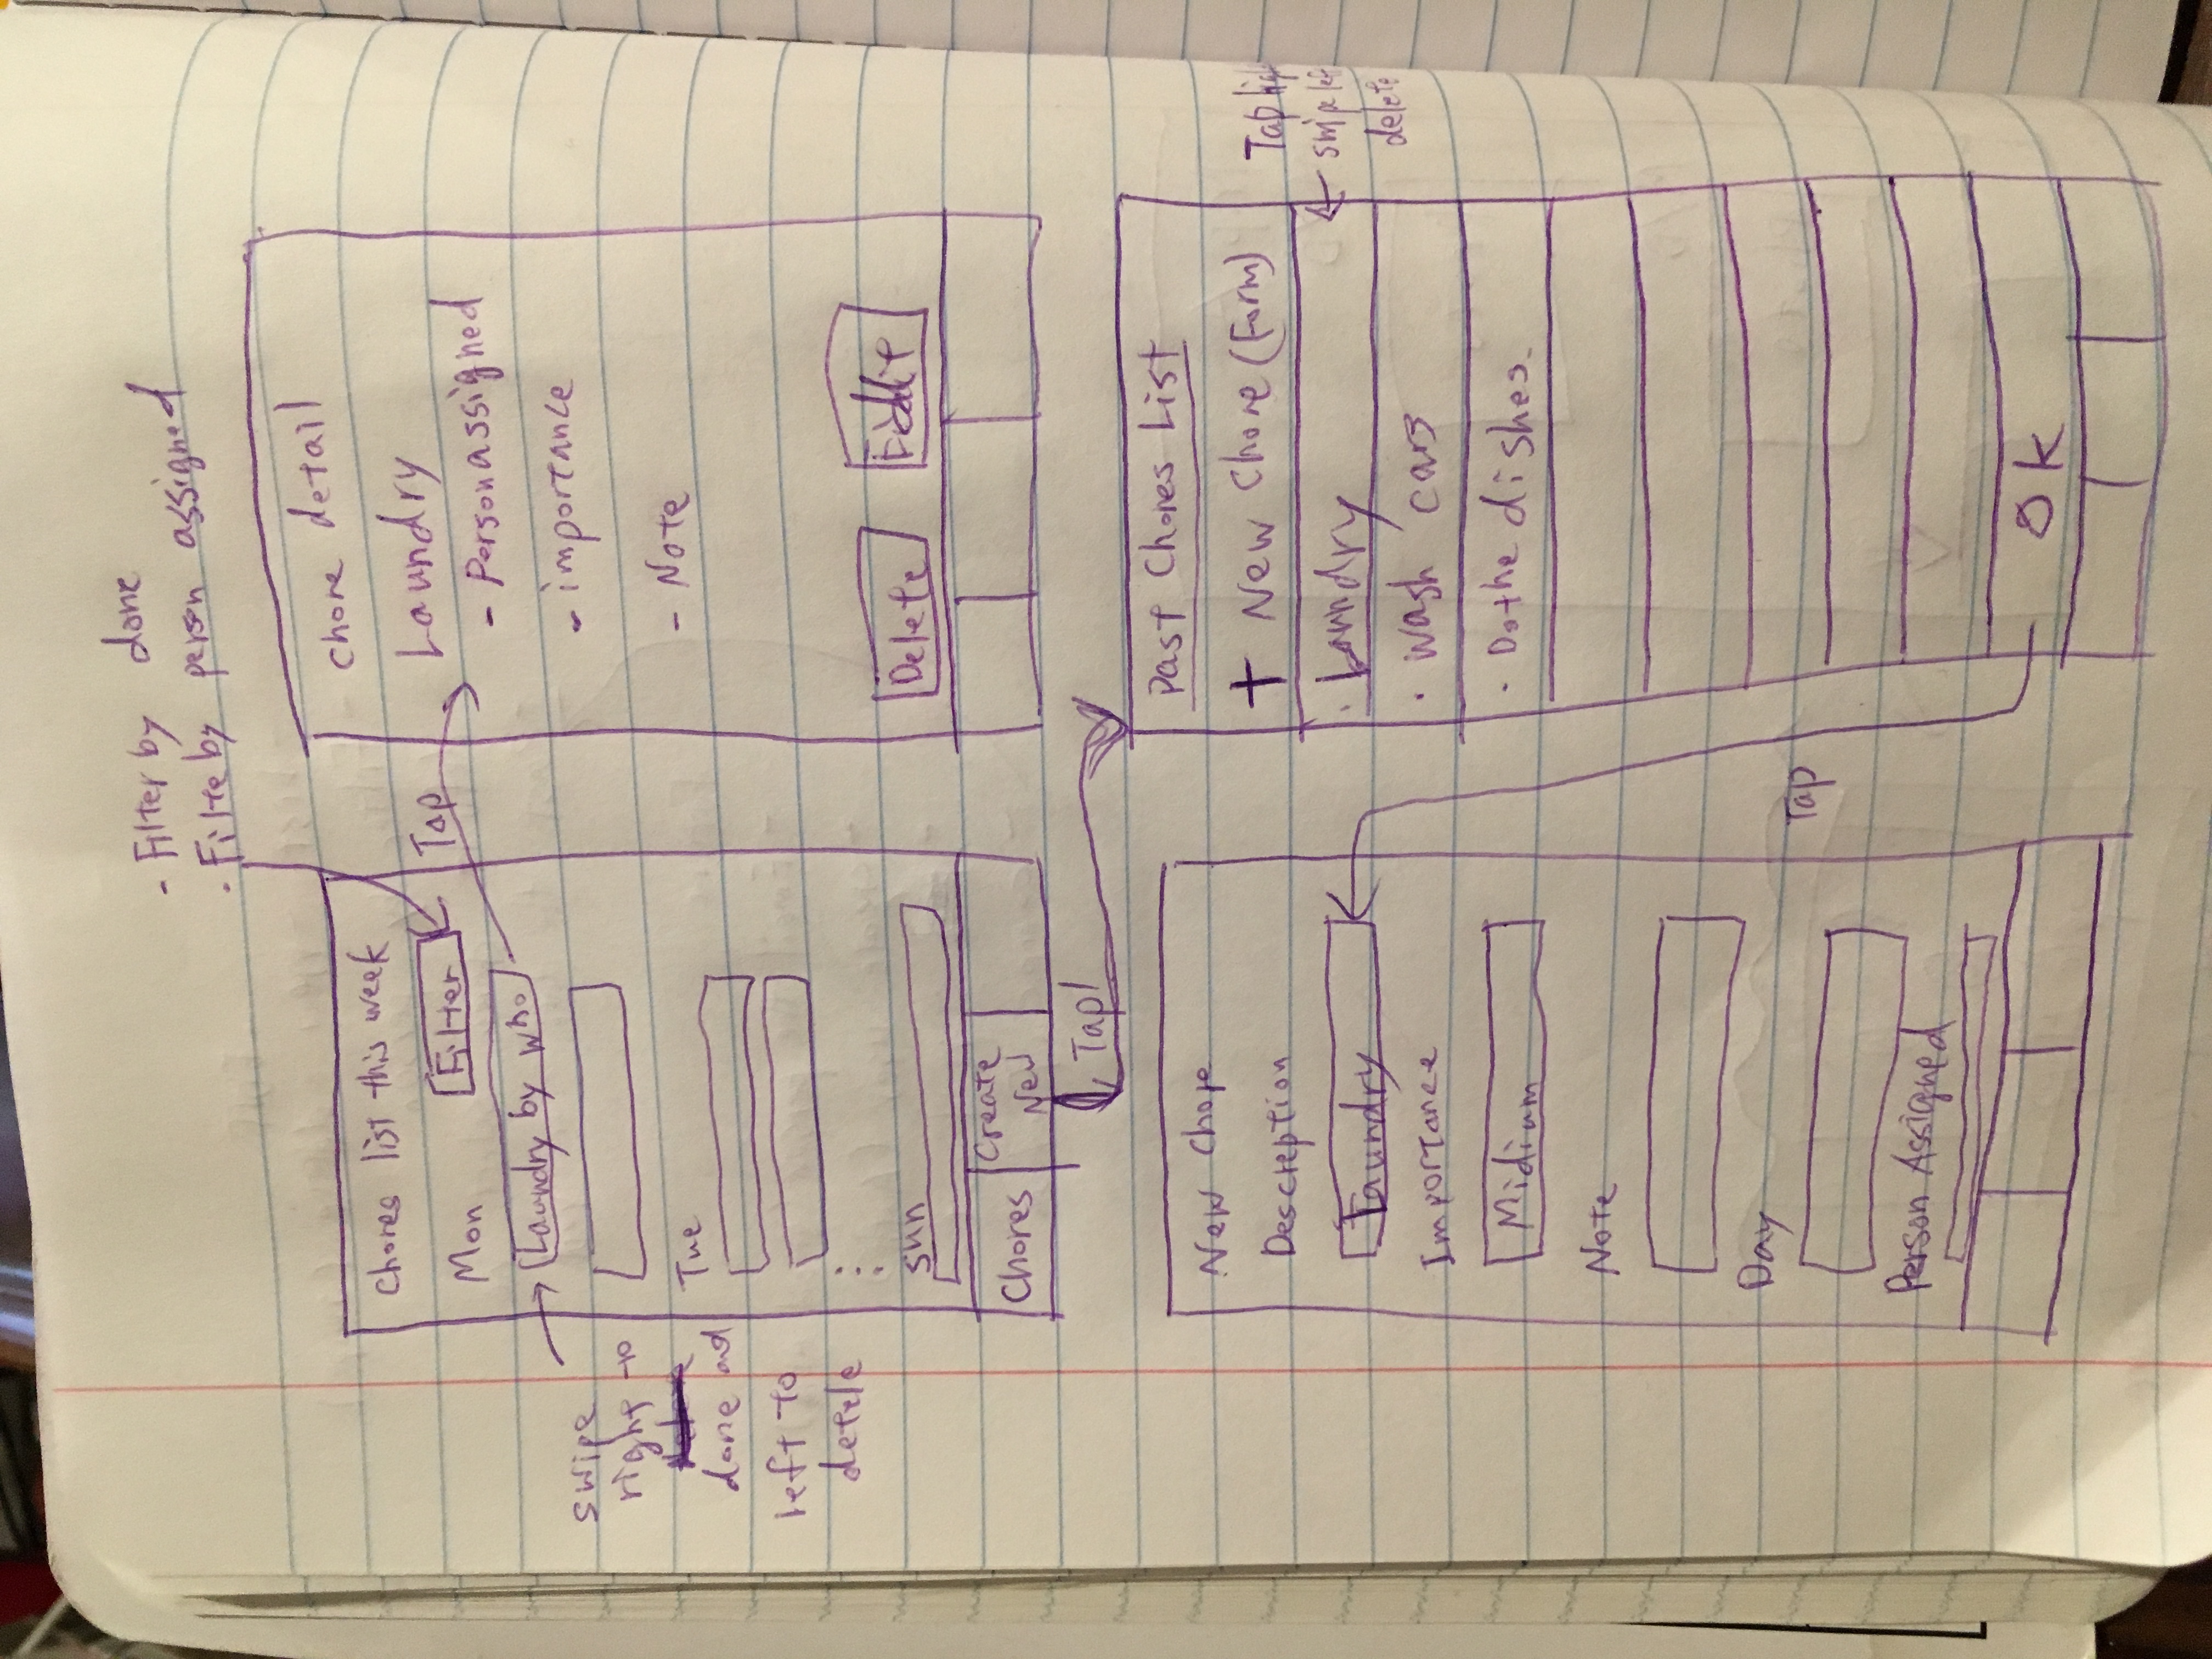 - Filter by done
- Filte by person assigned
Chores list this week
Mon
Filter
Laundry by who
Tap
swipe
right to
done and
left to
detele
Tue
Sun
Chores
Create
New
Tap!
Chore detail
Laundry
- Person assigned
- importance
- Note
Delete
Eddit
New Chore
Descreption
Laundry
Importance
Midium
Note
Day
Person Assigned
Past Chores List
+ New Chore (Form)
· Laundry
· Wash cars
· Do the dishes.
Tap
swipe left
delete
Tap
OK